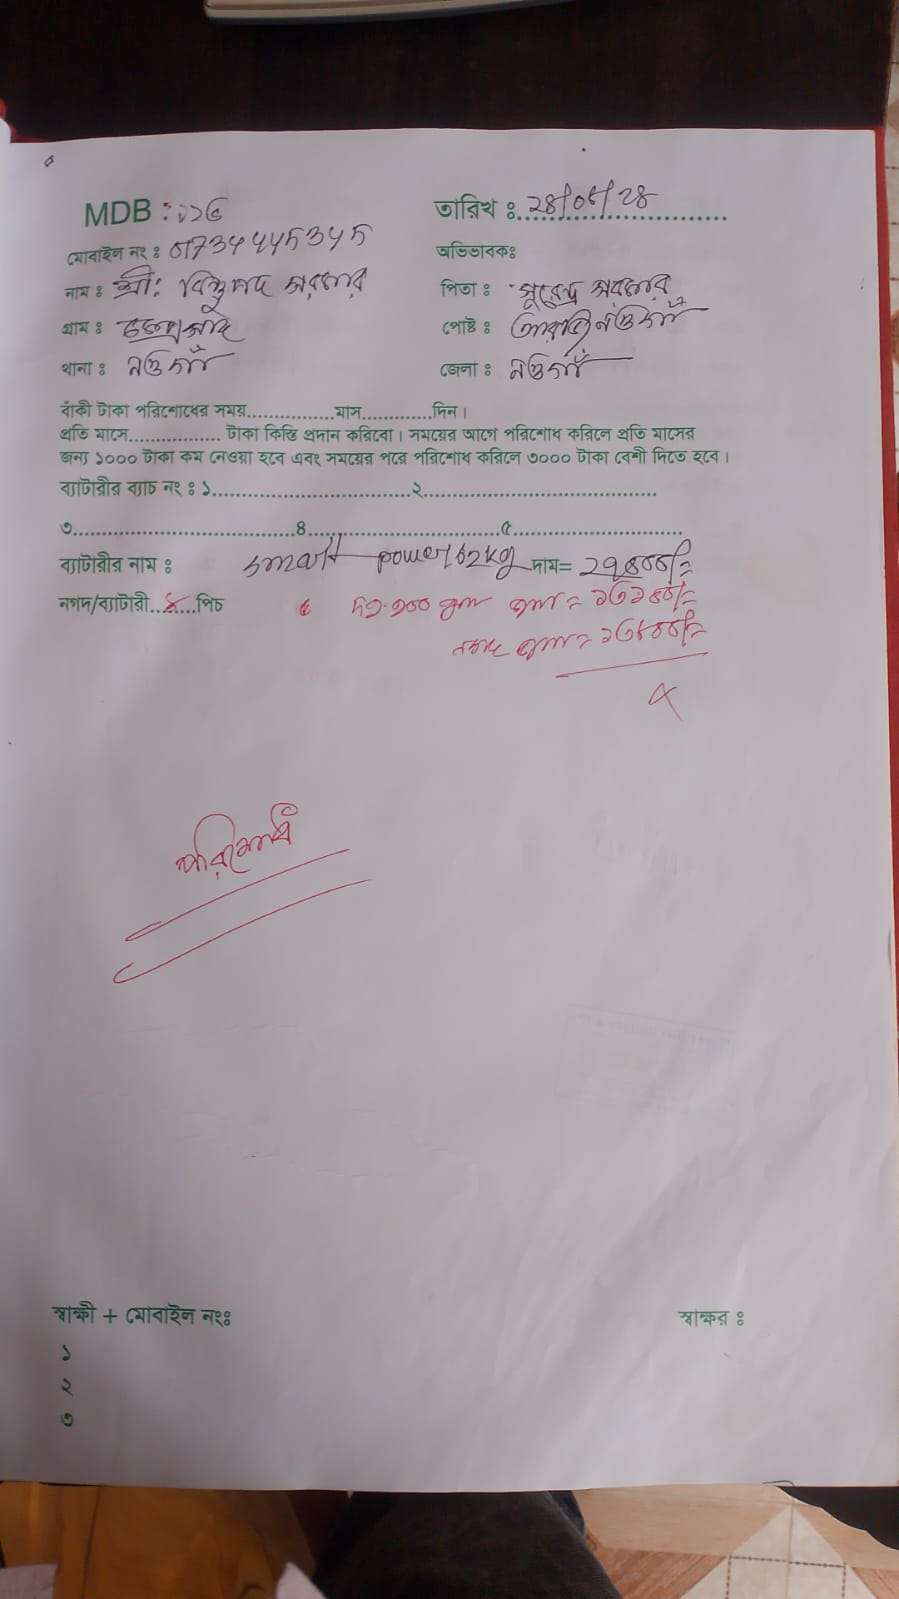 MDB : ১১৬ তারিখ ঃ ২৪/০৮/২৪
মোবাইল নং ঃ 01734445345 অভিভাবকঃ
নাম ঃ শ্রী: বিষ্ণুপদ সরকার পিতা ঃ সুরেন্দ্র সরকার
গ্রাম ঃ পোষ্ট ঃ নওগাঁ
থানা ঃ নওগাঁ জেলা ঃ নওগাঁ
বাঁকী টাকা পরিশোধের সময়...............মাস............দিন।
প্রতি মাসে................ টাকা কিস্তি প্রদান করিবো। সময়ের আগে পরিশোধ করিলে প্রতি মাসের
জন্য ১০০০ টাকা কম নেওয়া হবে এবং সময়ের পরে পরিশোধ করিলে ৩০০০ টাকা বেশী দিতে হবে।
ব্যাটারীর ব্যাচ নং ঃ ১.................................২.......................................
৩.....................................৪................................৫..............................
ব্যাটারীর নাম ঃ smart power 62kg দাম= ২৭৪০০/=
নগদ/ব্যাটারী..৪.....পিচ
নগদ = ১৩৮০০/=
পরিশোধ
স্বাক্ষী + মোবাইল নংঃ স্বাক্ষর ঃ
১
২
৩